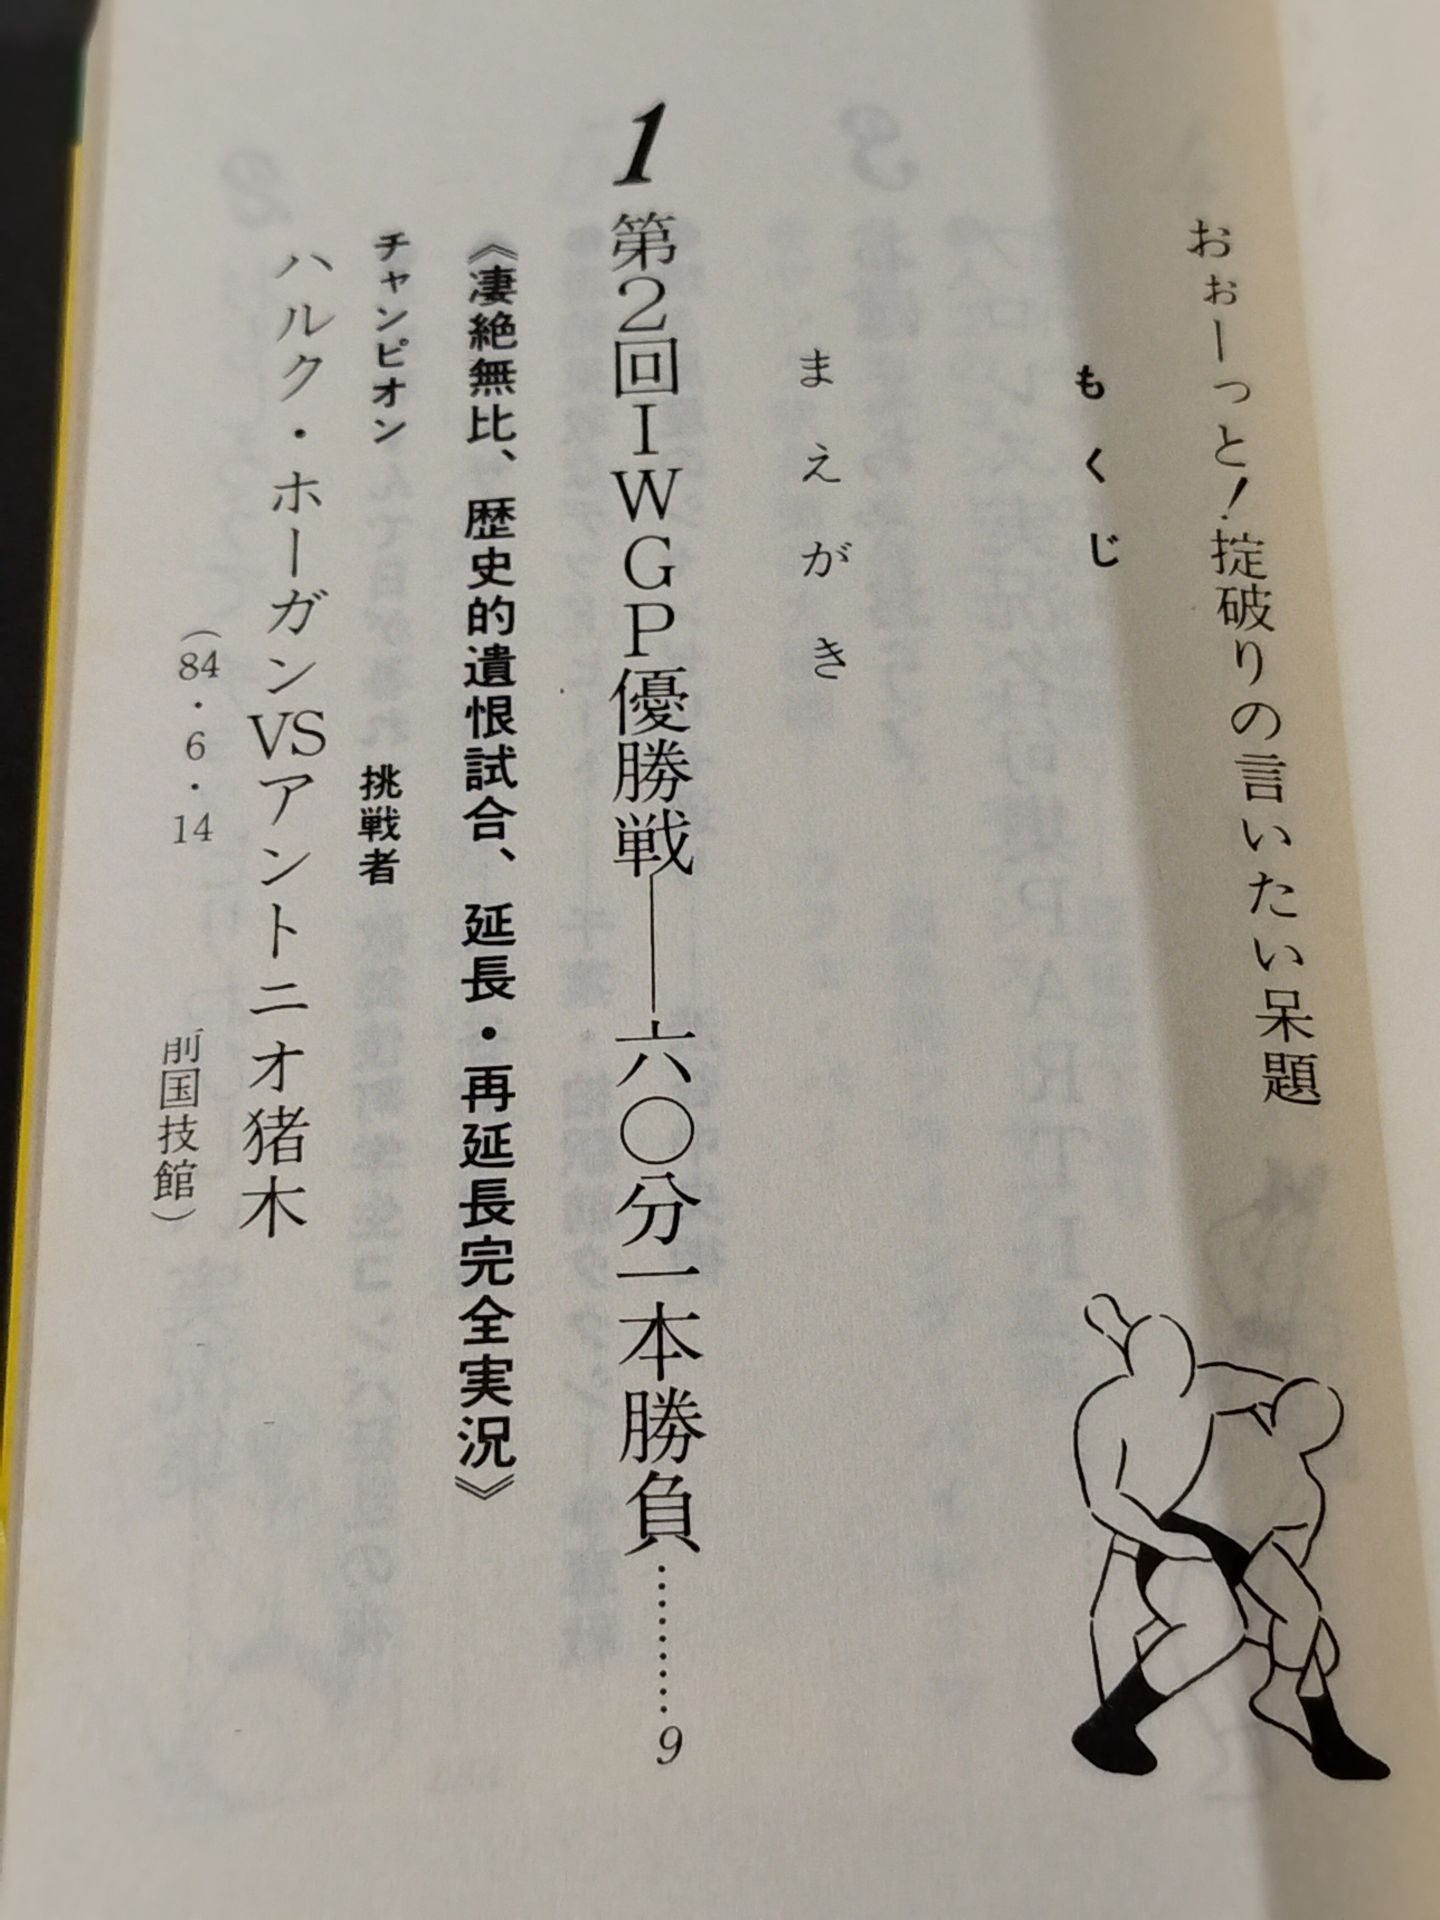 おぉーっと！掟破りの言いたい呆題
もくじ
まえがき
1 第2回IWGP優勝戦――六〇分一本勝負………9
《凄絶無比、歴史的遺恨試合、延長・再延長完全実況》
チャンピオン 挑戦者
ハルク・ホーガンVSアントニオ猪木
（84・6・14 前国技館）